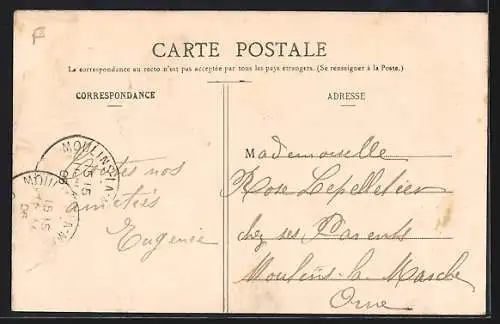 CARTE POSTALE
La correspondance au recto n'est pas acceptée par tous les pays étrangers. (Se renseigner à la Poste.)
CORRESPONDANCE
Toutes nos
amitiés
Eugénie
ADRESSE
Mademoiselle
Rose Lepelletier
chez ses Parents
Moulins-la-Marche
Orne
MOULINS-LA-M
15 15
MOULI
LA-M
15 15
F